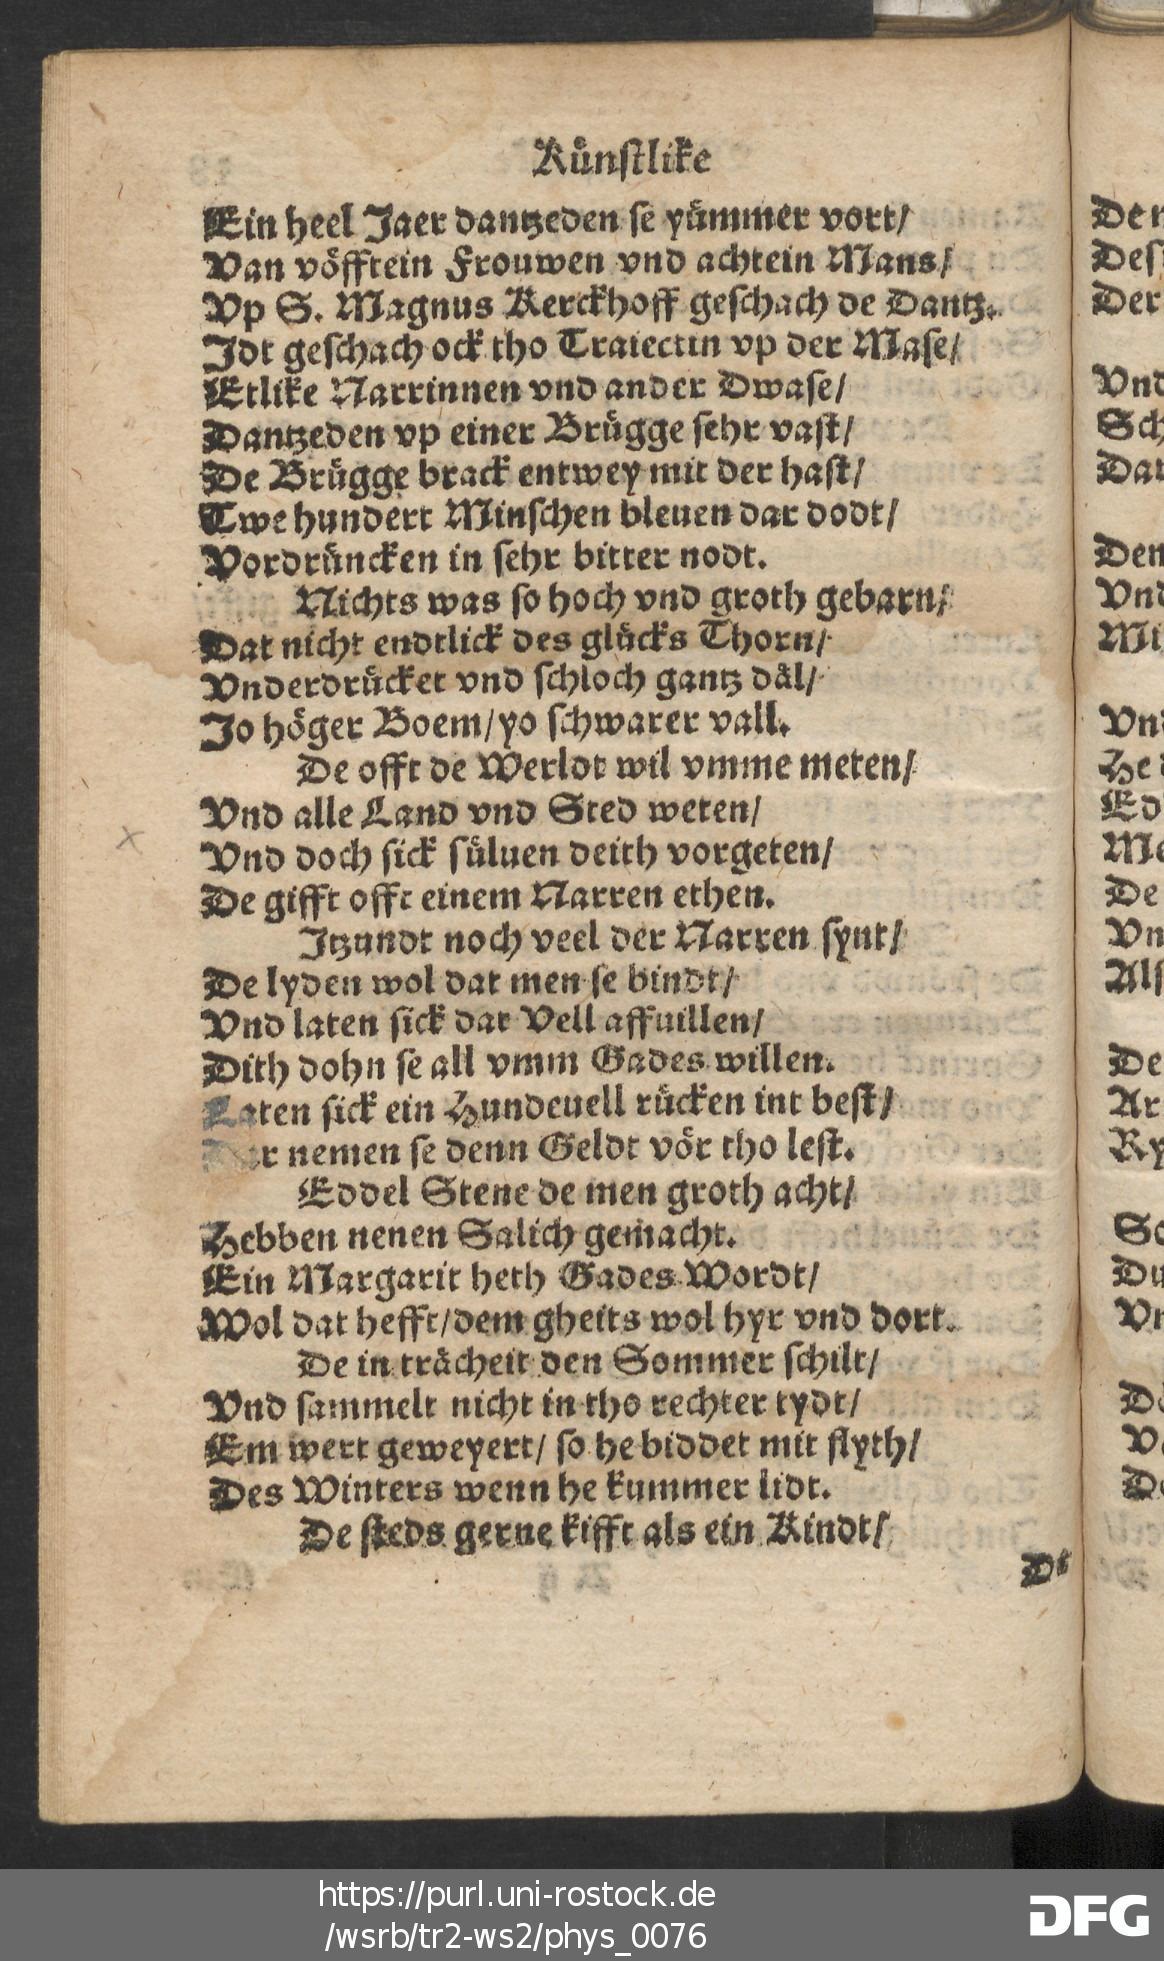 Künstlike
Ein heel Jaer dantzeden se yümmer vort/
Van vöfftein Frouwen vnd achtein Mans/
Vp S. Magnus Kerckhoff geschach de Dantz.
Idt geschach ock tho Traiectin vp der Mase/
Etlike Narrinnen vnd ander Dwase/
Dantzeden vp einer Brügge sehr vast/
De Brügge brack entwey mit der hast/
Twe hundert Minschen bleuen dar dodt/
Vordrüncken in sehr bitter nodt.
Nichts was so hoch vnd groth gebarn/
Dat nicht endtlick des glücks Thorn/
Vnderdrücket vnd schloch gantz däl/
Jo höger Boem/yo schwarer vall.
De offt de Werldt wil vmme meten/
Vnd alle Land vnd Sted weten/
Vnd doch sick süluen deith vorgeten/
De gifft offt einem Narren ethen.
Itzundt noch veel der Narren synt/
De lyden wol dat men se bindt/
Vnd laten sick dat Vell affuillen/
Dith dohn se all vmm Gades willen.
Laten sick ein Hundeuell rücken int best/
nemen se denn Geldt vör tho lest.
Eddel Stene de men groth acht/
Hebben nenen Salich gemacht.
Ein Margarit heth Gades Wordt/
Wol dat hefft/dem gheits wol hyr vnd dort.
De in trächeit den Sommer schilt/
Vnd sammelt nicht in tho rechter tydt/
Em wert geweyert/ so he biddet mit flyth/
Des Winters wenn he kummer lidt.
De steds gerne kifft als ein Kindt/
De
https://purl.uni-rostock.de
/wsrb/tr2-ws2/phys_0076
DFG